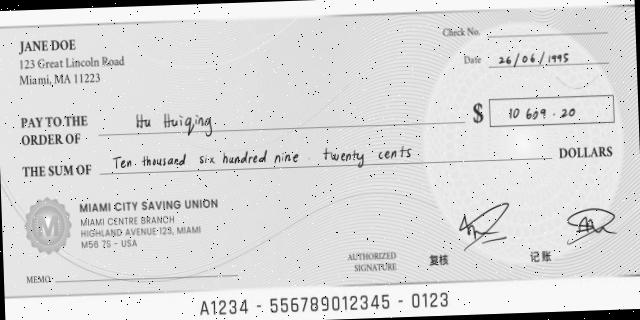 JANE DOE
123 Great Lincoln Road
Miami, MA 11223
Check No.
Date 26/06/1995
PAY TO THE
ORDER OF Hu Huiqing
$ 10 609.20
THE SUM OF Ten thousand six hundred nine twenty cents DOLLARS
MIAMI CITY SAVING UNION
MIAMI CENTRE BRANCH
HIGHLAND AVENUE 129, MIAMI
M56 7S - USA
M
AUTHORIZED
SIGNATURE
复核
记账
MEMO
A1234 - 556789012345 - 0123